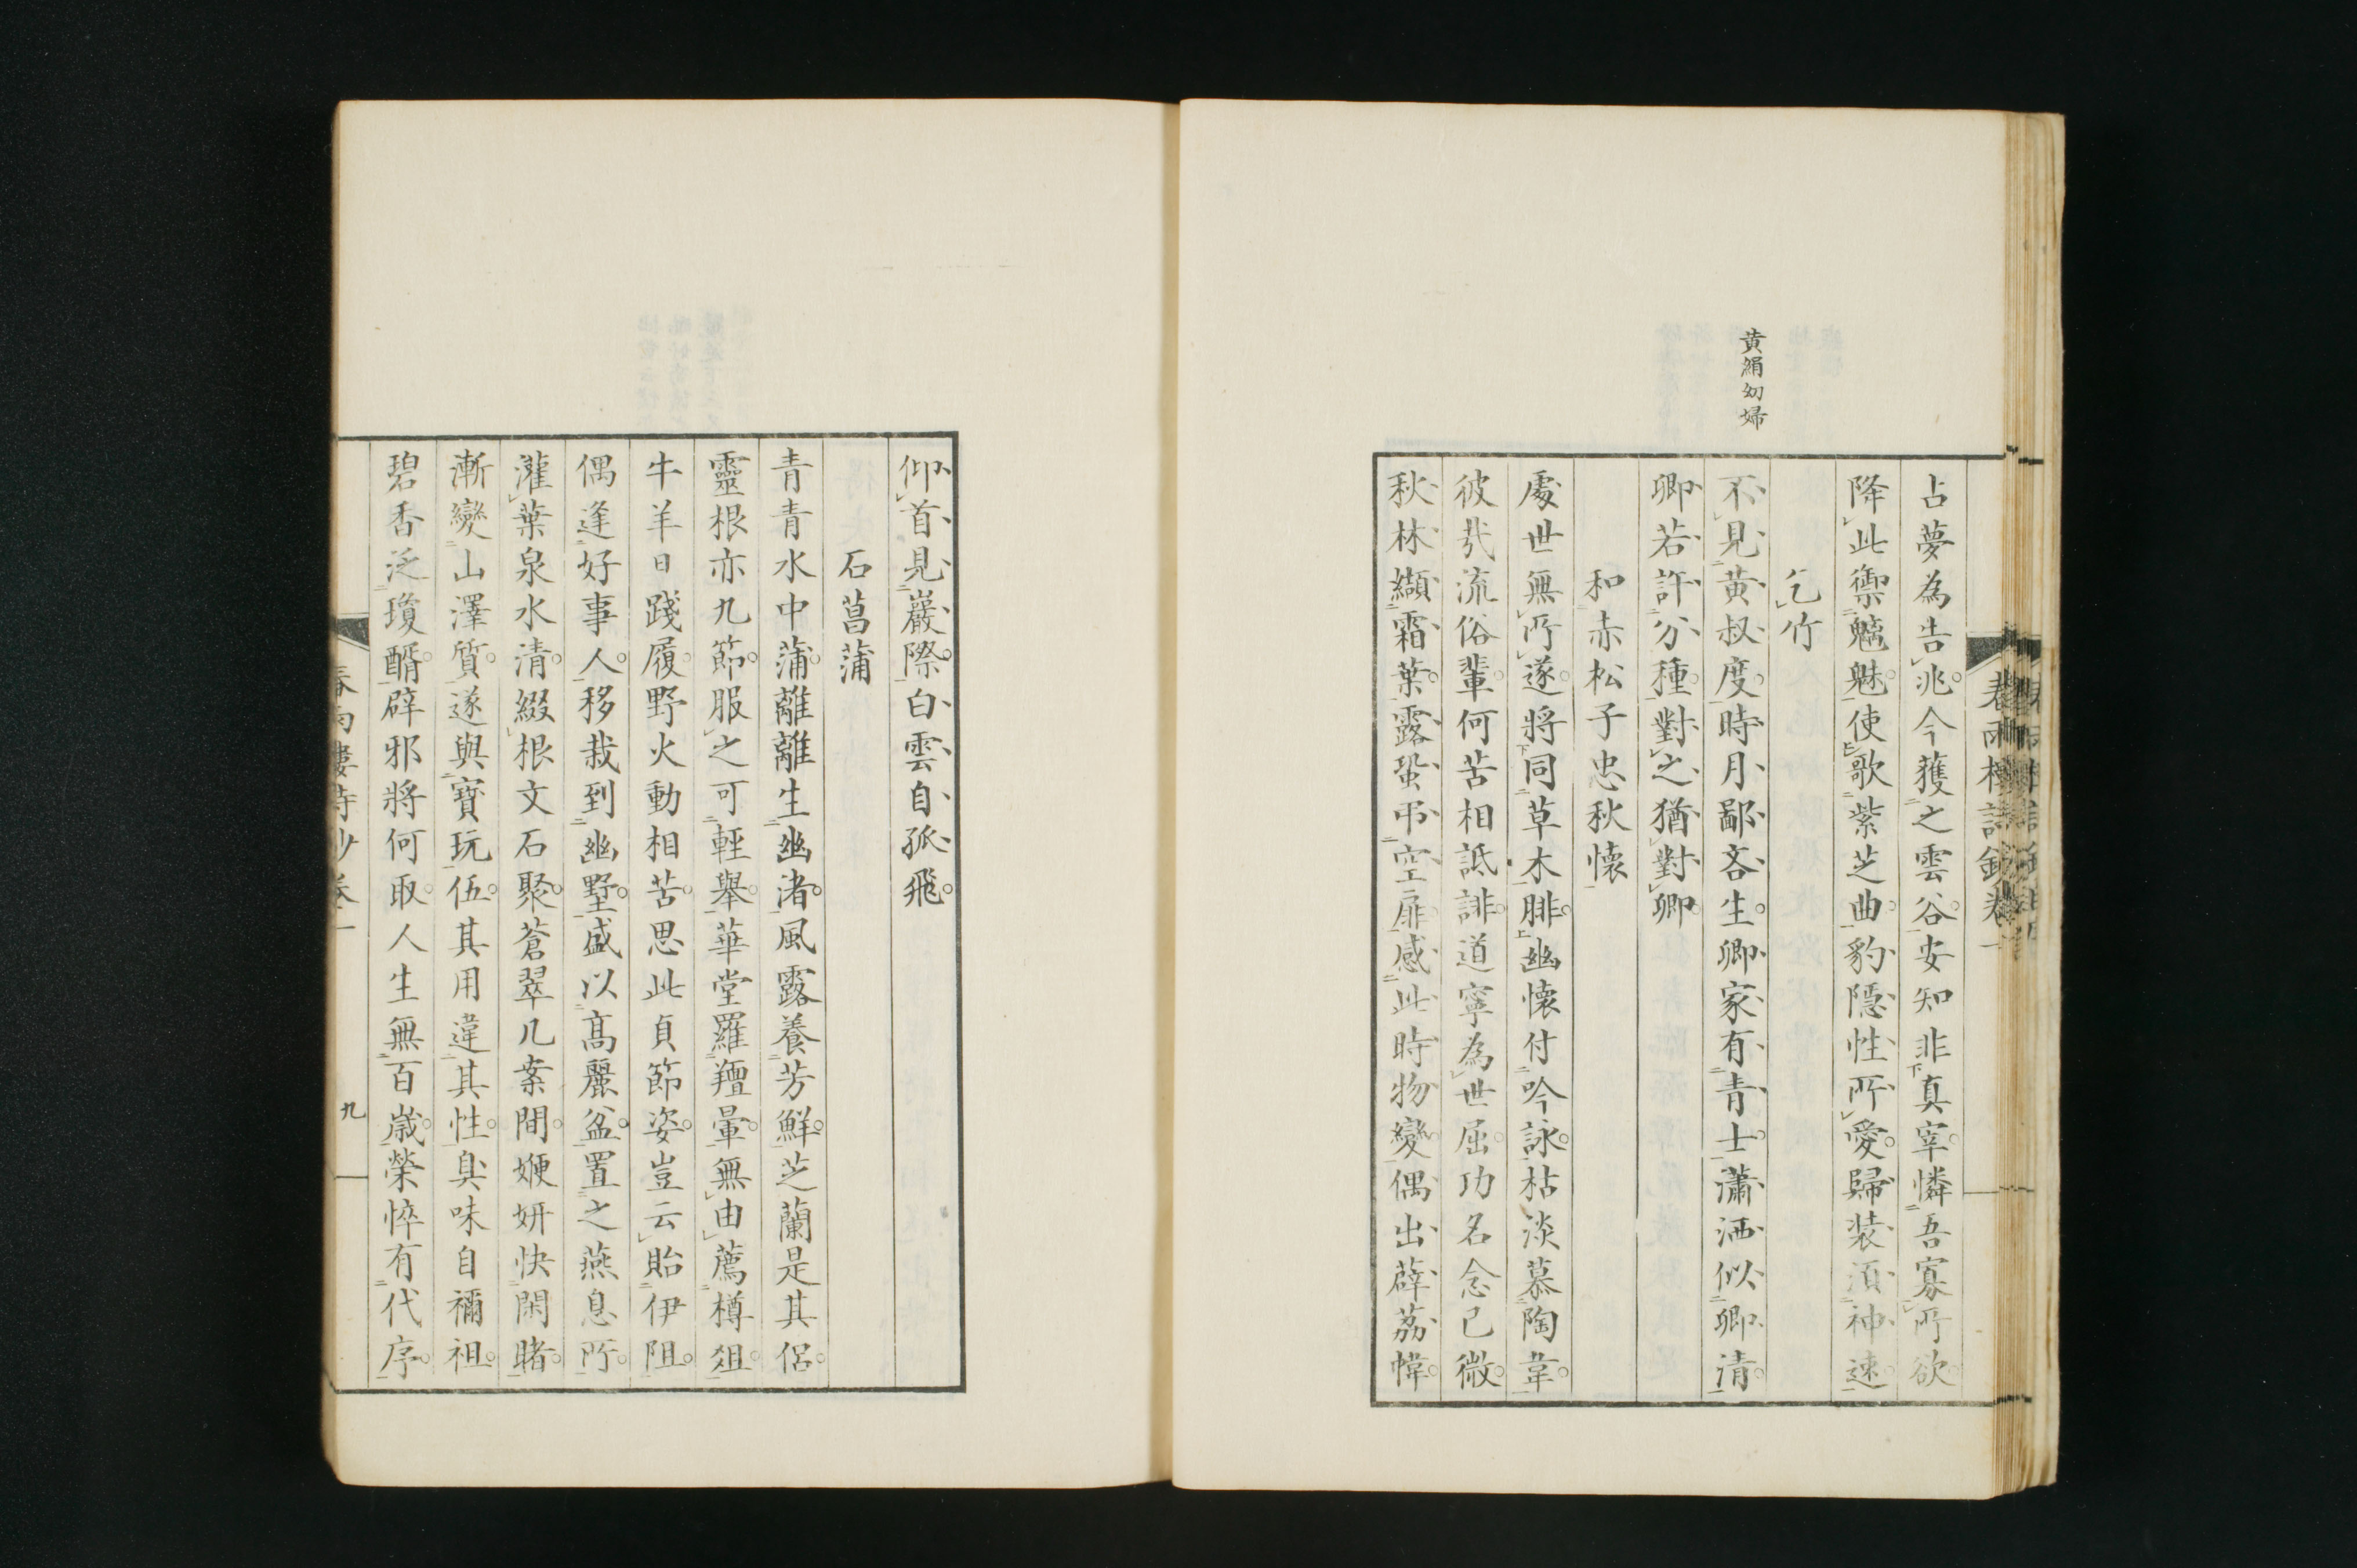 黄絹幼婦
占夢為告兆今獲之雲谷安知非真宰憐吾寡所欲
降此禦魑魅使歌紫芝曲豹隱性所愛歸装須神速
乞竹
不見黄叔度時月鄙吝生卿家有青士瀟洒似卿清
卿若許分種對之猶對卿
和赤松子忠秋懷
處世無所遂將同草木腓幽懷付吟詠枯淡慕陶韋
彼哉流俗輩何苦相詆誹道寧為世屈功名念已微
秋林纈霜葉露蛩弔空扉感此時物變偶出薜荔幃
仰首見巖際白雲自孤飛
石菖蒲
青青水中蒲離離生幽渚風露養芳鮮芝蘭是其侶
靈根亦九節服之可輕舉華堂羅羶葷無由薦樽俎
牛羊日踐履野火動相苦思此貞節姿豈云貽伊阻
偶逢好事人移栽到幽墅盛以髙麗盆置之燕息所
灌葉泉水清綴根文石聚蒼翠几案間㛹妍快閑睹
漸變山澤質遂與寶玩伍其用違其性臭味自禰祖
碧香泛瓊醑辟邪將何取人生無百歲榮悴有代序
春雨樓詩鈔卷一
九